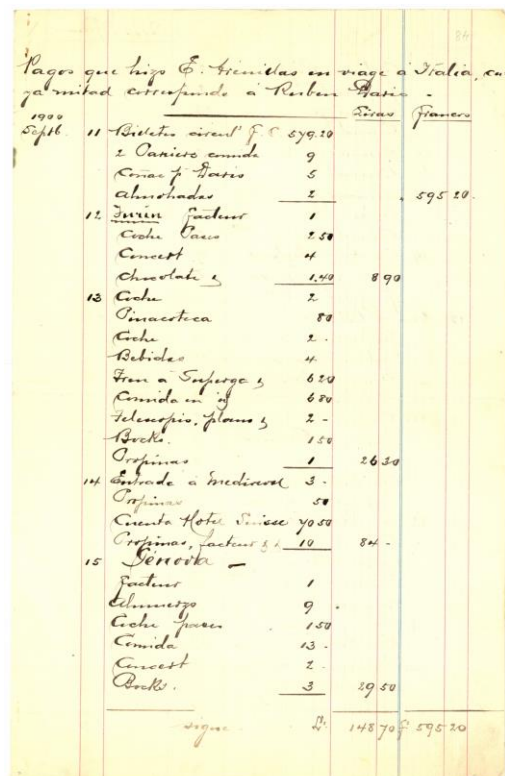 84
Pagos que hizo E. en viage á Italia, cu
ya mitad corresponde á Ruben Dario.
Liras Francos
1900
Septb. 11 Billetes circul' f. 579.20
2 Paniers comida 9
Coñac p' Dario 5
Almohadas 2 595 20.
12 Turín facteur 1
Coche Paseo 2 50
Concert 4
Chocolate 1.40 8 90
13 Coche 2
Pinacoteca 80
Coche 2 -
Bebidas 4.
Tren á Superga 6 20
Comida en id 6 80
Telescopio, plano 2 -
Bocks. 1 50
Propinas 1 26 30
14 Entrada á Medioeval 3 -
Propinas 50
Cuenta Hotel Suisse 70 50
Propinas, facteur 10 84 -
15 Génova -
facteur 1
Almuerzo 9
Coche paseo 1 50
Comida 13 -
Concert 2 -
Bocks. 3 29 50
sigue £. 148 70 f 595 20